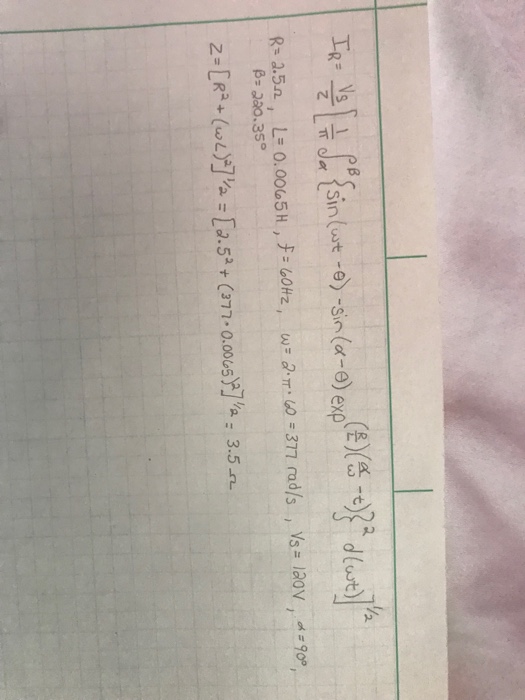 I_R = Vs/Z [ 1/π ∫_α^β { sin(ωt - θ) - sin(α - θ) exp^{(R/L)(α/ω - t)} }² d(ωt) ]^{1/2}
R = 2.5Ω, L = 0.0065H, f = 60Hz, ω = 2·π·60 = 377 rad/s, Vs = 120V, α = 90°,
β = 220.35°
Z = [R² + (ωL)²]^{1/2} = [2.5² + (377·0.0065)²]^{1/2} = 3.5Ω